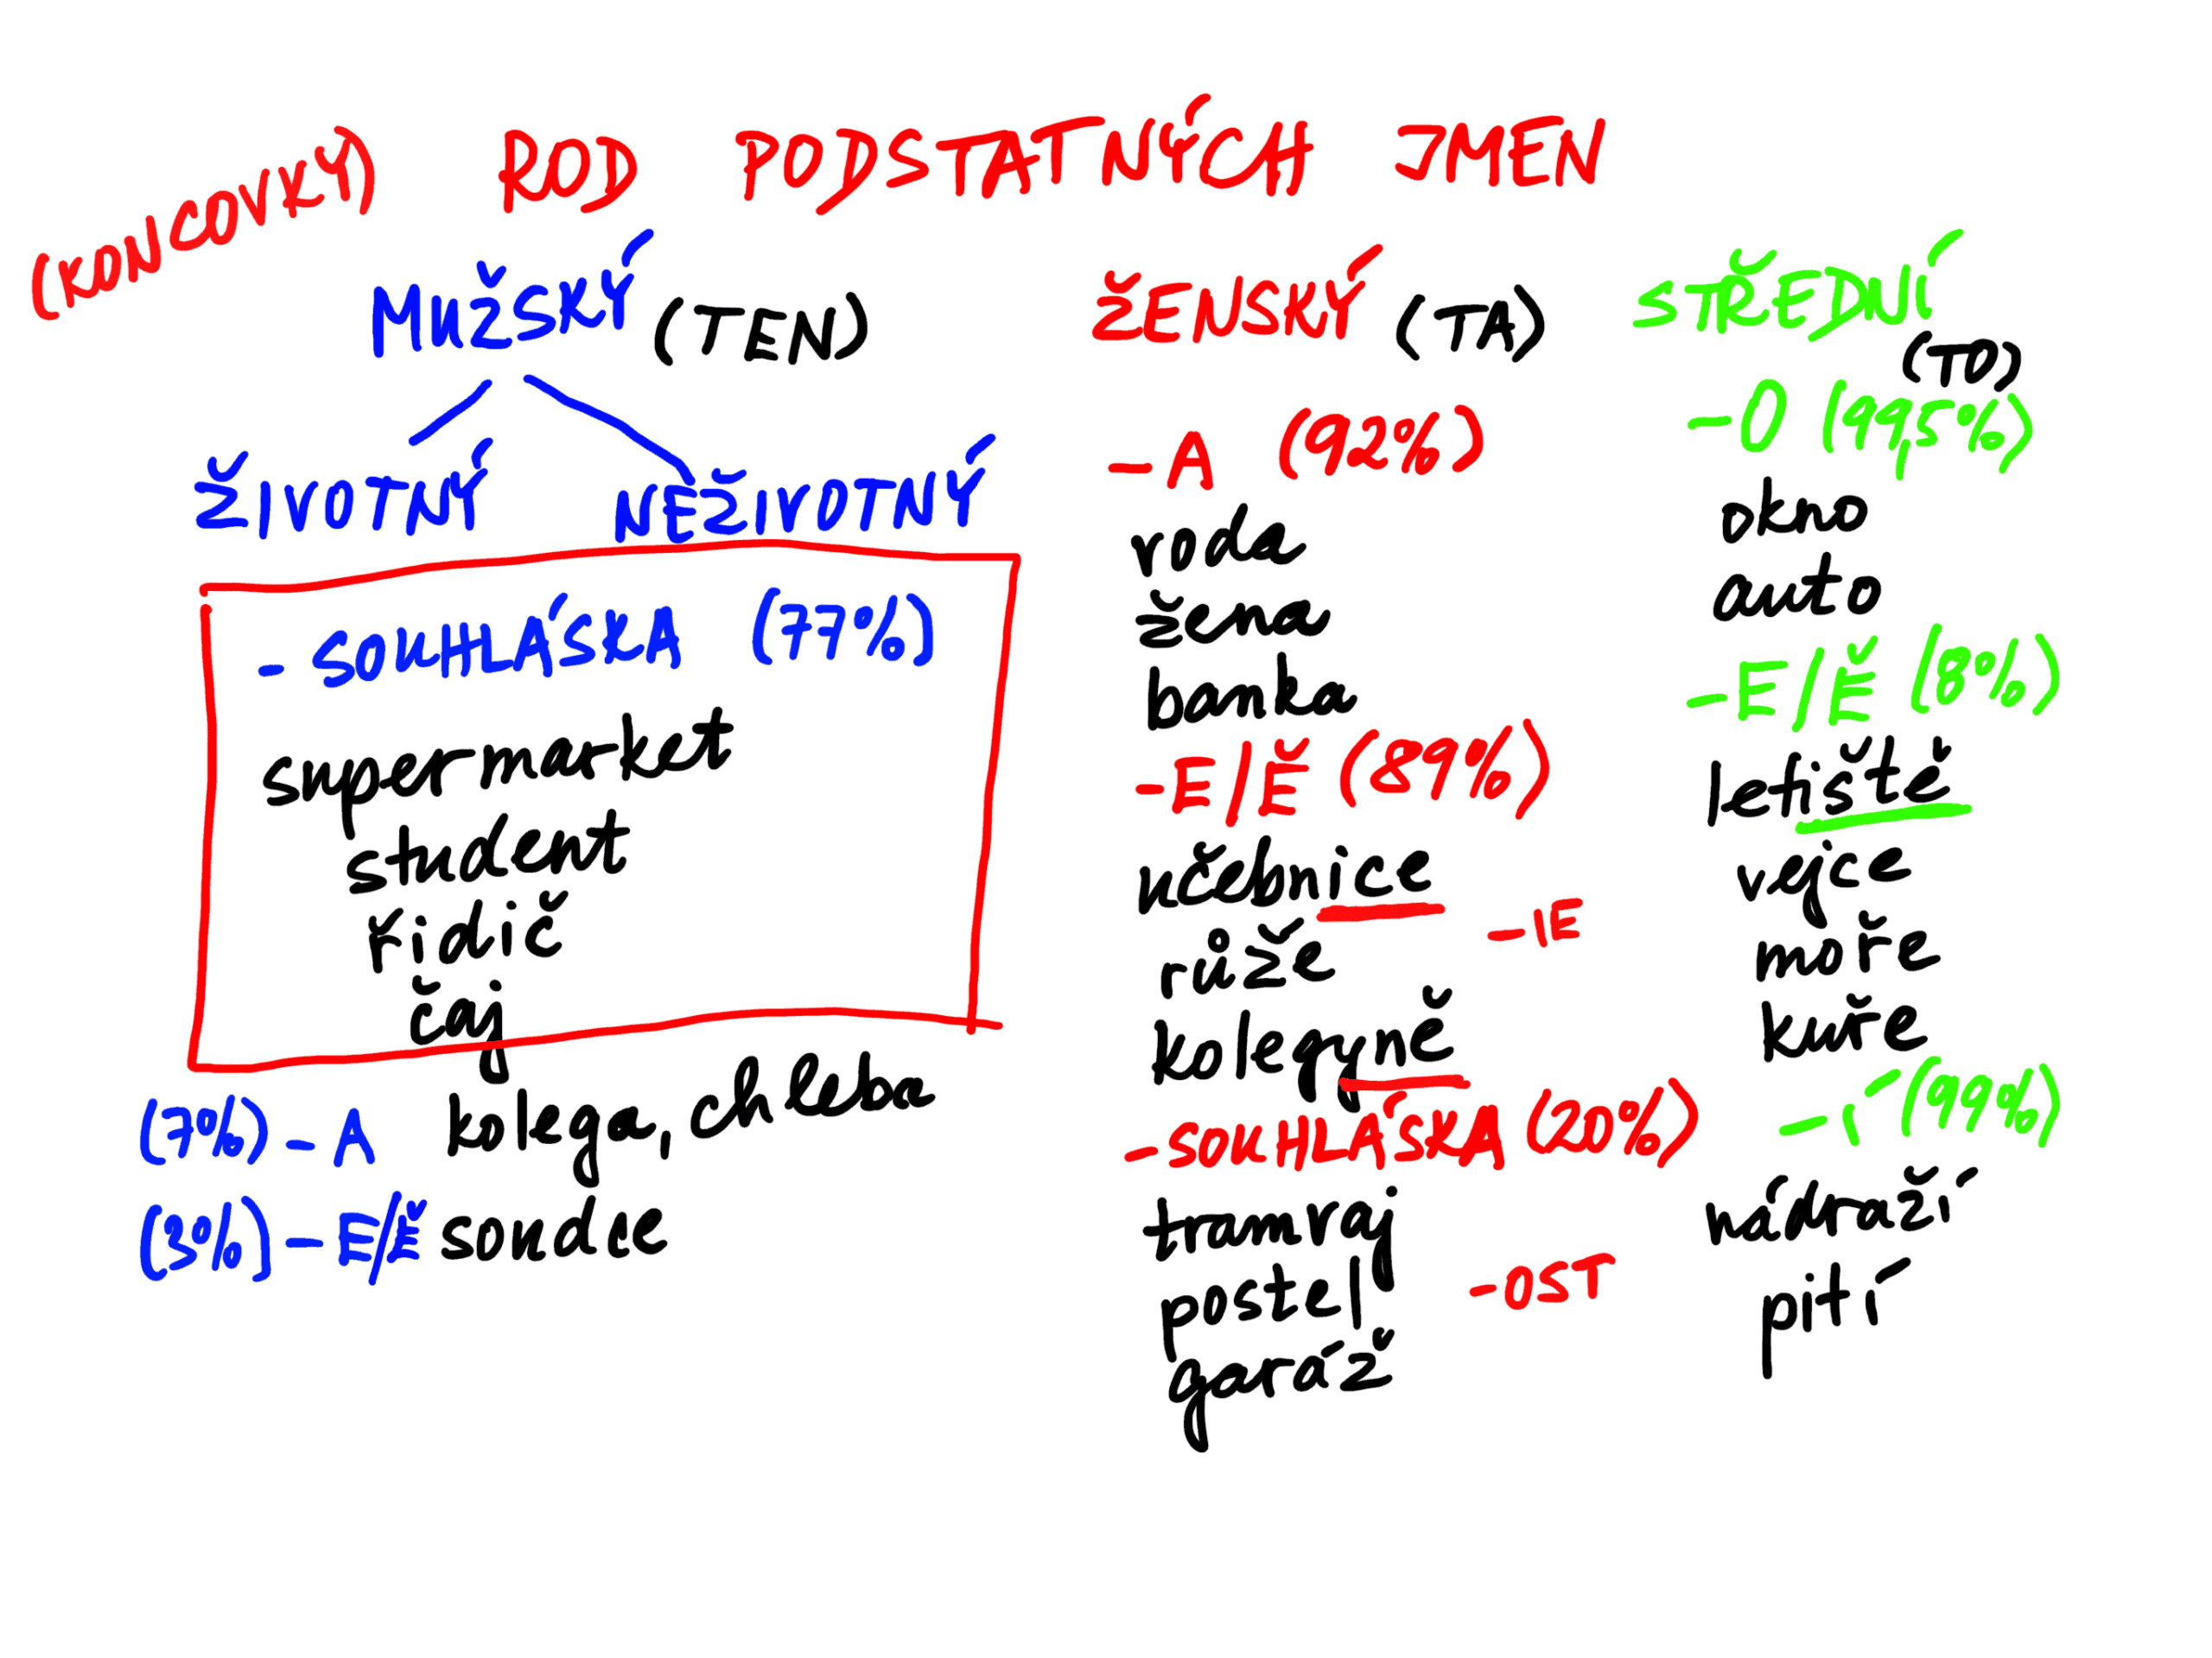 (KONCOVKY) ROD PODSTATNÝCH JMEN
MUŽSKÝ (TEN)
ŽIVOTNÝ NEŽIVOTNÝ
- SOUHLÁSKA (77%)
supermarket
student
řidič
čaj
(7%) - A kolega, chleba
(3%) - E/Ě soudce
ŽENSKÝ (TA)
- A (92%)
voda
žena
banka
- E/Ě (89%)
učebnice
- IE
růže
kolegyně
- SOUHLÁSKA (20%)
tramvaj
postel
- OST
garáž
STŘEDNÍ
(TO)
- O (99,5%)
okno
auto
- E/Ě (8%)
letiště
vejce
moře
kuře
- Í (99%)
nádraží
pití